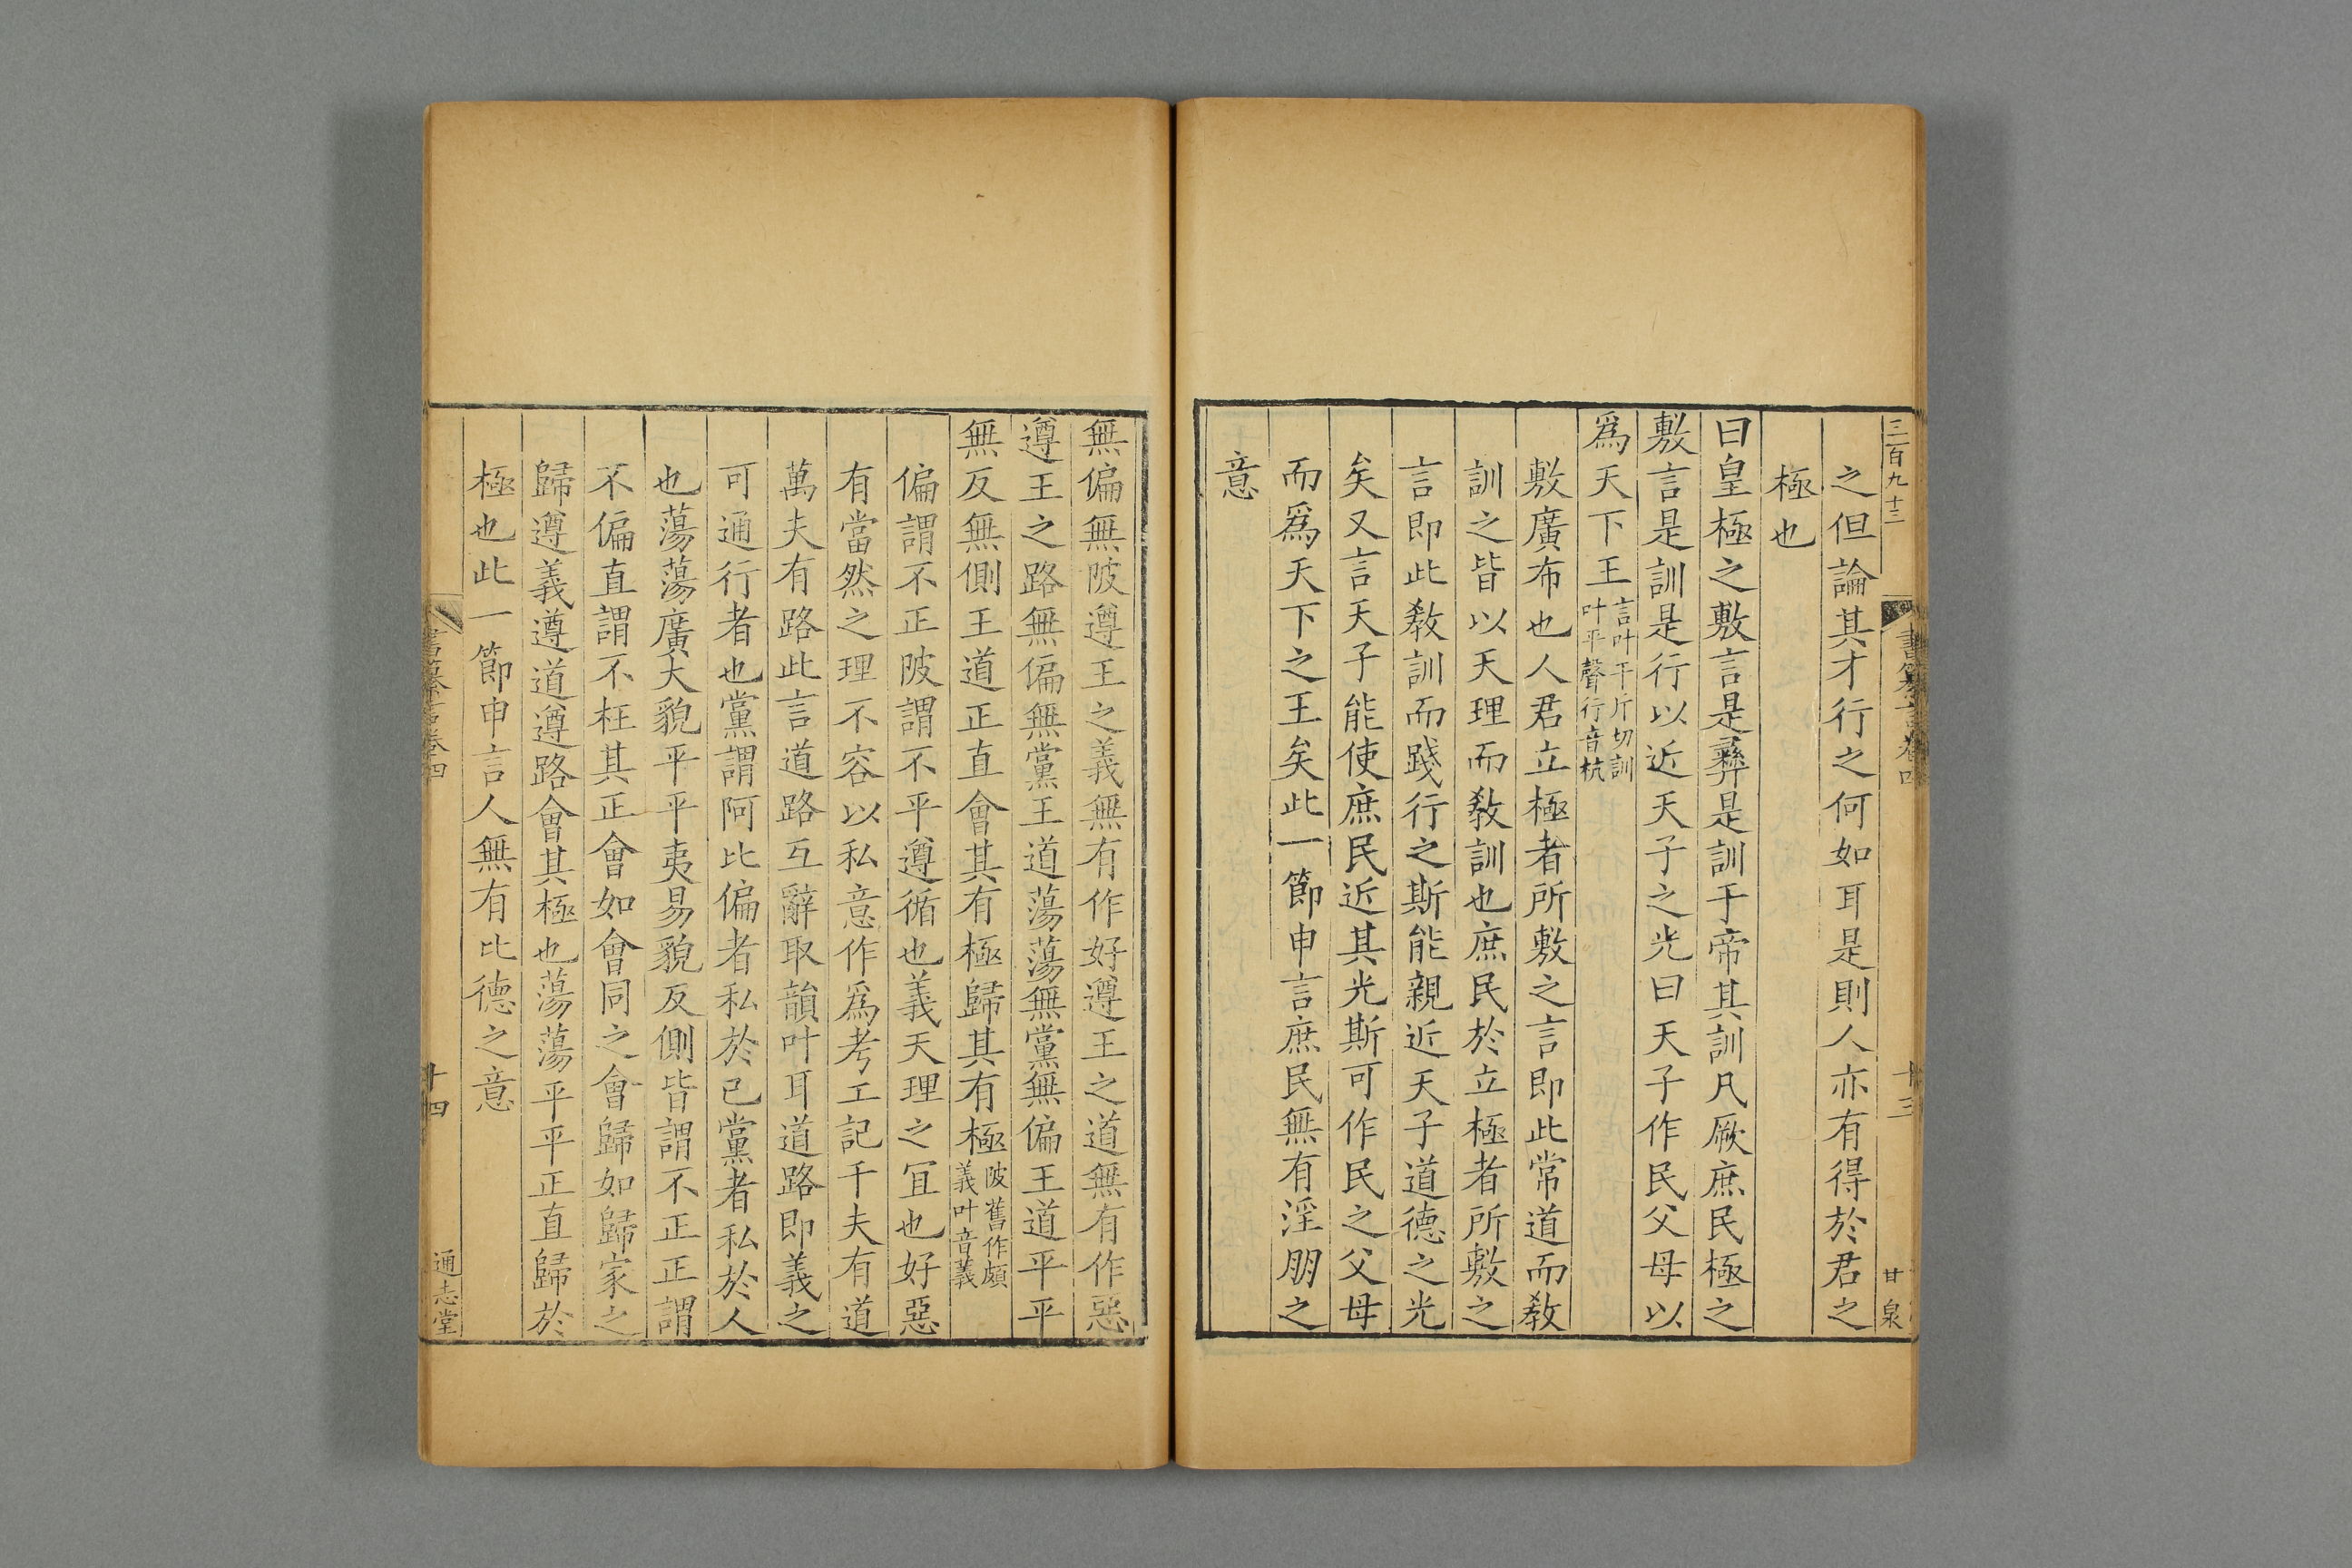 三百九十三
書纂言卷四
十三
甘泉
之但論其才行之何如耳是則人亦有得於君之
極也
曰皇極之敷言是彞是訓于帝其訓凡厥庶民極之
敷言是訓是行以近天子之光曰天子作民父母以
爲天下王言叶干斤切訓叶平聲行音杭
敷廣布也人君立極者所敷之言即此常道而敎
訓之皆以天理而敎訓也庶民於立極者所敷之
言即此敎訓而踐行之斯能親近天子道德之光
矣又言天子能使庶民近其光斯可作民之父母
而爲天下之王矣此一節申言庶民無有淫朋之
意
無偏無陂遵王之義無有作好遵王之道無有作惡
遵王之路無偏無黨王道蕩蕩無黨無偏王道平平
無反無側王道正直會其有極歸其有極陂舊作頗義叶音義
偏謂不正陂謂不平遵循也義天理之冝也好惡
有當然之理不容以私意作爲考工記千夫有道
萬夫有路此言道路互辭取韻叶耳道路即義之
可通行者也黨謂阿比偏者私於己黨者私於人
也蕩蕩廣大貌平平夷易貌反側皆謂不正正謂
不偏直謂不枉其正會如會同之會歸如歸家之
歸遵義遵道遵路會其極也蕩蕩平平正直歸於
極也此一節申言人無有比德之意
書纂言卷四
十四
通志堂